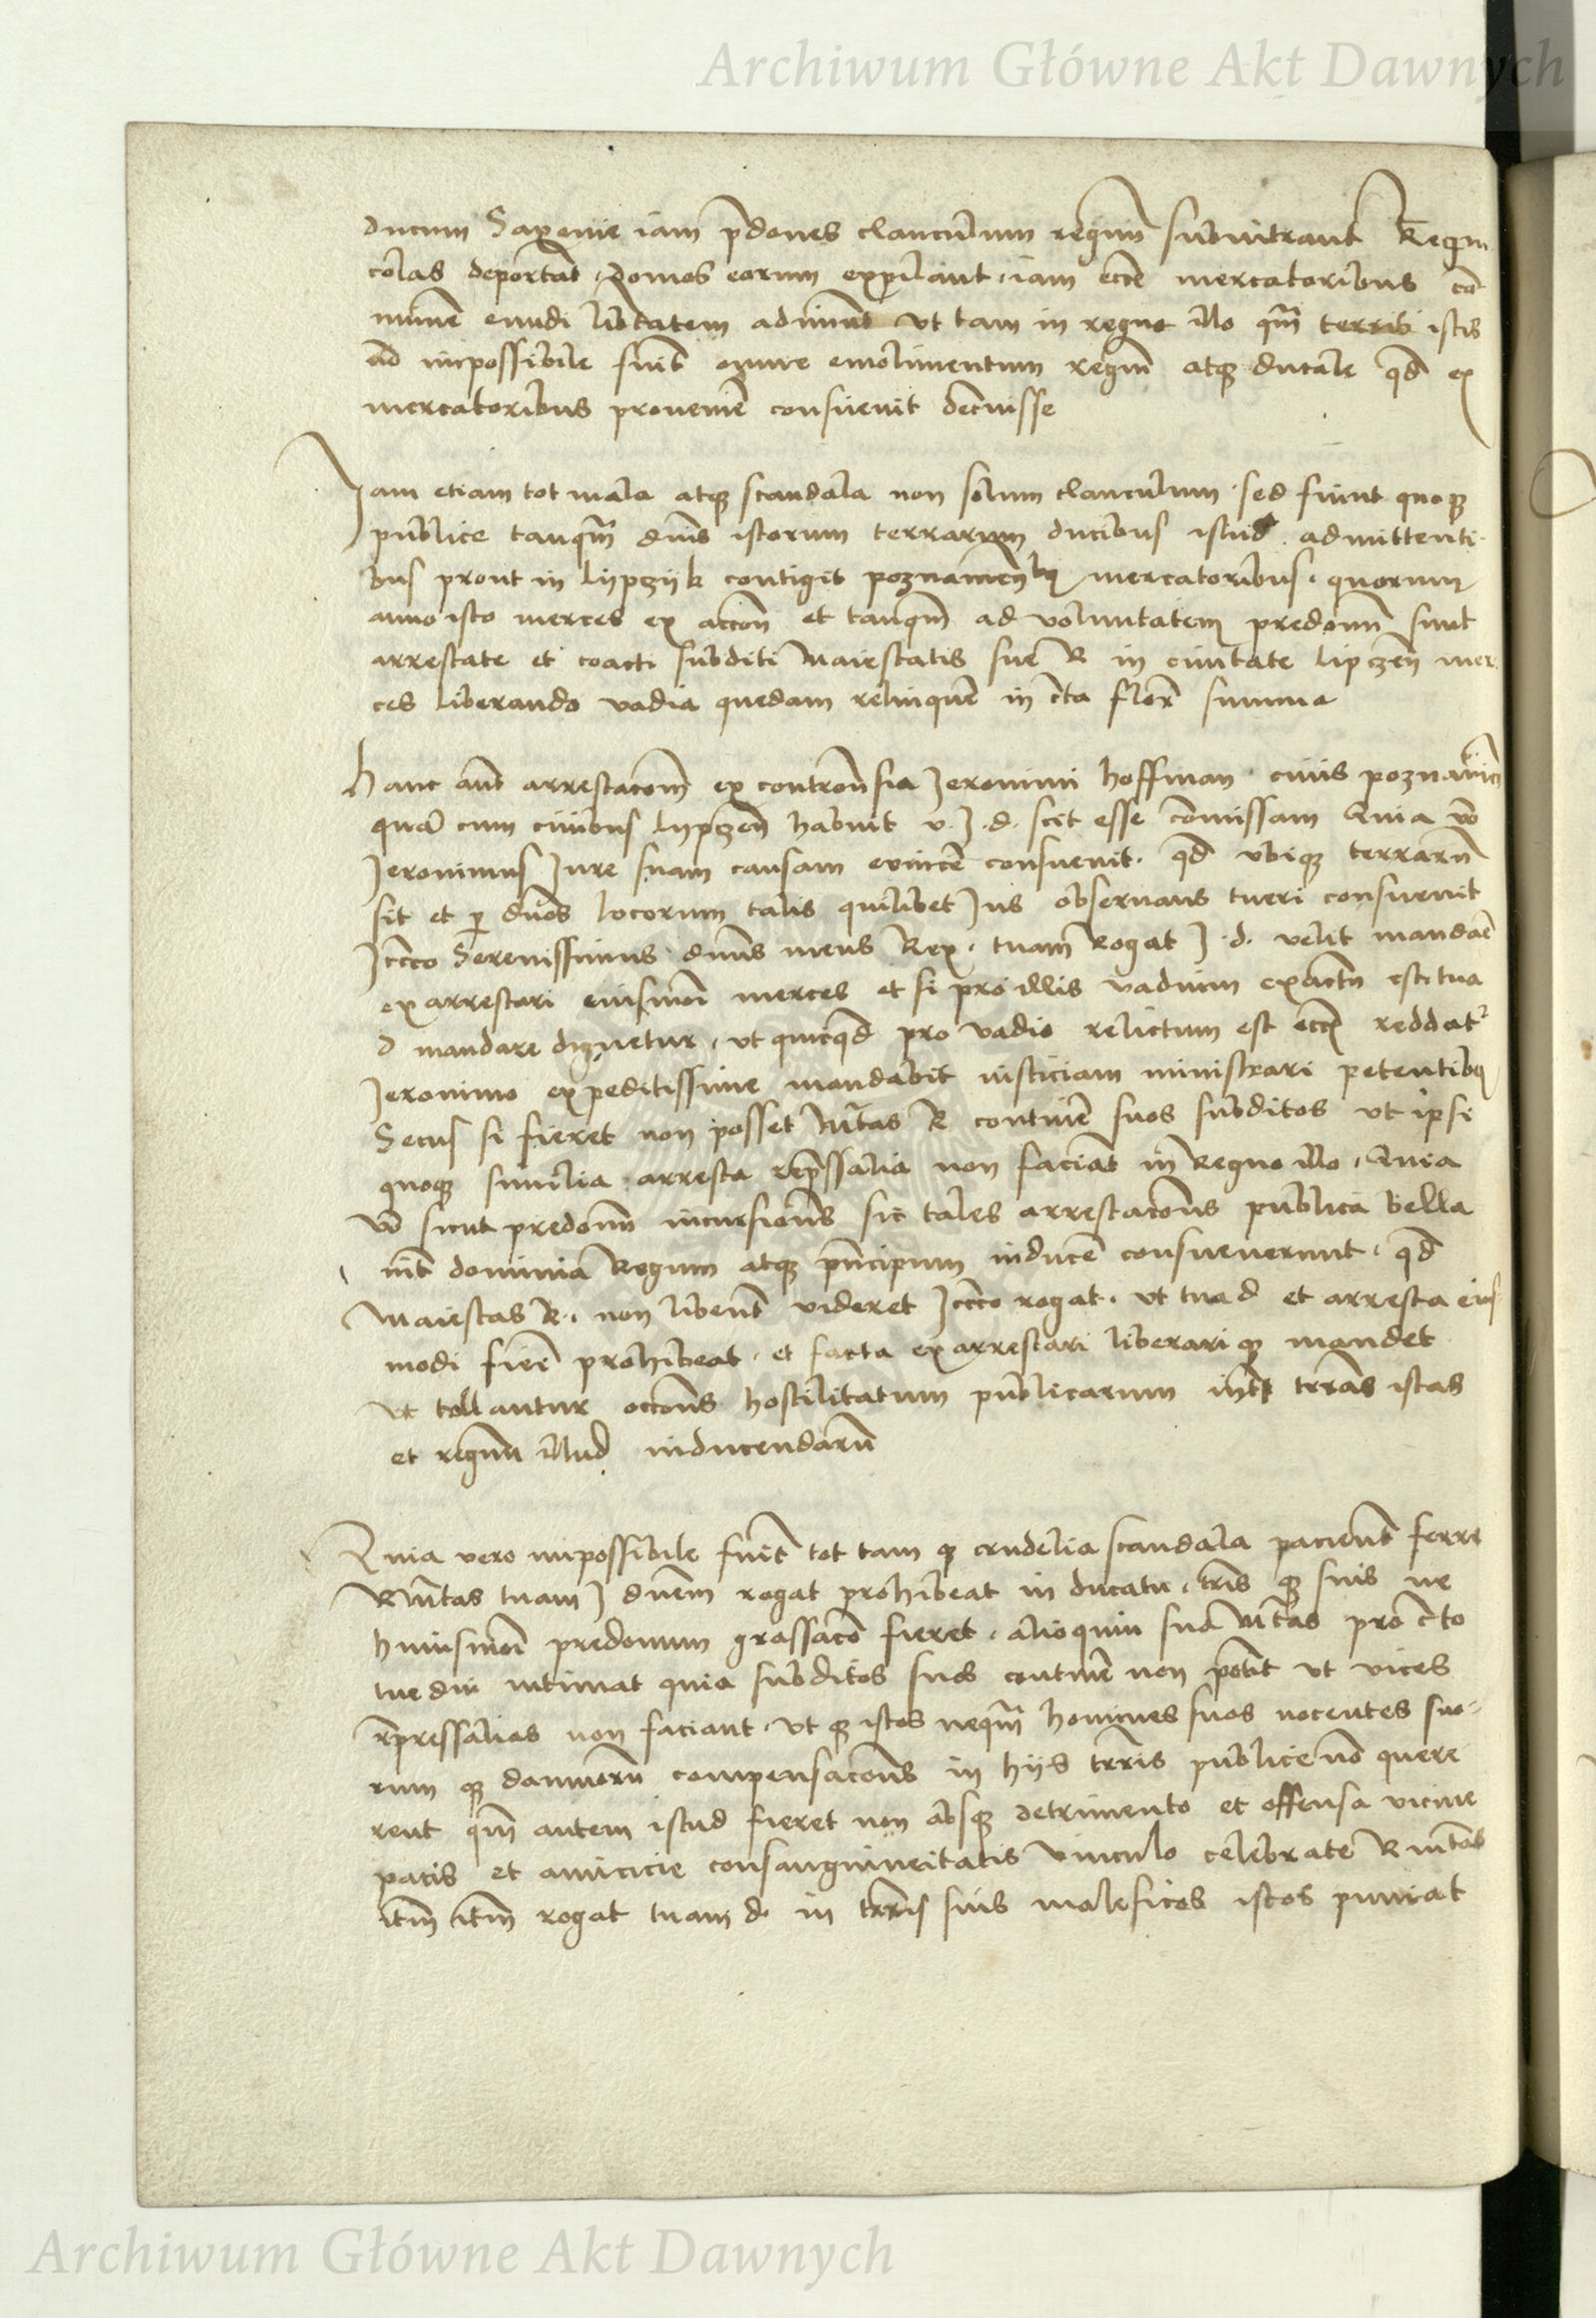 Archiwum Główne Akt Dawnych
ducum Saxonie iam p̄dones clanculum regnū subintrant Regni
colas deportāt, domos eorum expilant, iam etc̄ mercatoribus cō
munē eundi lib̄tatem adimūt vt tam in regno illo qm̄ terris istis
impossibile fuit omne emolimentum regiū atqꝫ ducale qd̄ ex
mercatoribus proveniē consuevit
Iam etiam tot mala atqꝫ scandala non solum clanculum sed fiunt quoqꝫ
publice tanqm̄ dn̄is istorum terrarum ducibus istud admittenti
bus prout in lypczyk contigit poznanien̄ mercatoribus. quorum
anno isto merces ex et tanqm̄ ad voluntatem predonū sunt
arrestate et coacti subditi Maiestatis sue R in civitate lipczen̄ mer
ces liberando vadia quedam relinquē in c̄ta flor̄ summa
Hanc aūt arrestacōm ex Jeronimi hoffman civis poznanien̄
quā cum civibus lypczen̄ habuit v. J. d. scit esse cōmissam Quia vō
Jeronimus Jure suam causam evincē consuevit. qd̄ vbiqꝫ terrarū
sit et p̄ dn̄os locorum talis quilibet Jus observans tueri consuevit
Jccco Serenissimus dn̄us meus Rex. tuam Rogat J. d. velit mandaē
exarrestari eiusmoī merces et si pro illis vadium exactū est tua
d mandare dignetur, vt quicqd̄ pro vadio relictum est etc̄ reddat᷑
Jeronimo expeditissime mandabit iusticiam ministrari petentibꝫ
Secus si fieret non posset Mtas R continē suos subditos vt ipsi
quoqꝫ similia arresta rep̄ssalia non faciāt in Regno illo, Quia
vō sicut predonū incursiōns sic tales arrestacōns publica bella
int̄ dominia Regum atqꝫ pn̄cipum inducē consueverunt. qd̄
Maiestas R. non libent̄ videret Jccco rogat. vt tua d et arresta eius
modi fieē prohibeat, et facta exarrestari liberariqꝫ mandet
vt tollantur occōns hostilitatum publicarum int̄ terras istas
et regnū illud inducendarū
Quia vero impossibile fuit tot tam qꝫ crudelia scandala pacient̄ ferre
RMtas tuam J dn̄em rogat prohibeat in ducatu, tr̄is qꝫ suis ne
huiusmoī predonum grassacō fieret. alioquin sua Mtas pro c̄to
tue dni intimat quia subditos suos continē non potit vt vices
rēpressalias non faciant, vt qꝫ istos nequā homines suos nocentes suo-
rum qꝫ damnorū compensacōns in hijs terris publice nō quere
rent qm̄ autem istud fieret non absqꝫ detrimento et offensa vicine
pacis et amicicie consanguineitatis vinculo celebrate R Mtas
itm̄ itm̄ rogat tuam d. in terris suis maleficos istos puniat
Archiwum Główne Akt Dawnych